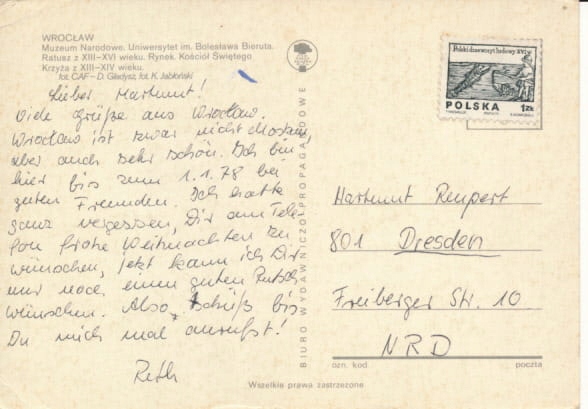 WROCŁAW
Muzeum Narodowe. Uniwersytet im. Bolesława Bieruta.
Ratusz z XIII–XVI wieku. Rynek. Kościół Świętego
Krzyża z XIII–XIV wieku.
fot. CAF – D. Gładysz, fot. K. Jabłoński
Lieber Hartmut!
Viele Grüße aus Wrocław.
Wrocław ist zwar nicht Moskau,
aber auch sehr schön. Ich bin
hier bis zum 1.1.78 bei
guten Freunden. Ich hatte
ganz vergessen, Dir am Tele-
fon frohe Weihnachten zu
wünschen, jetzt kann ich Dir
nur noch einen guten Rutsch
wünschen. Also, tschüß bis
Du mich mal anrufst!
BIURO WYDAWNICZO-PROPAGANDOWE
Polski drzeworyt ludowy XVI w.
POLSKA 1ZŁ
Hartmut Reupert
801 Dresden
Freiberger Str. 10
NRD
ozn. kod poczta
Wszelkie prawa zastrzeżone